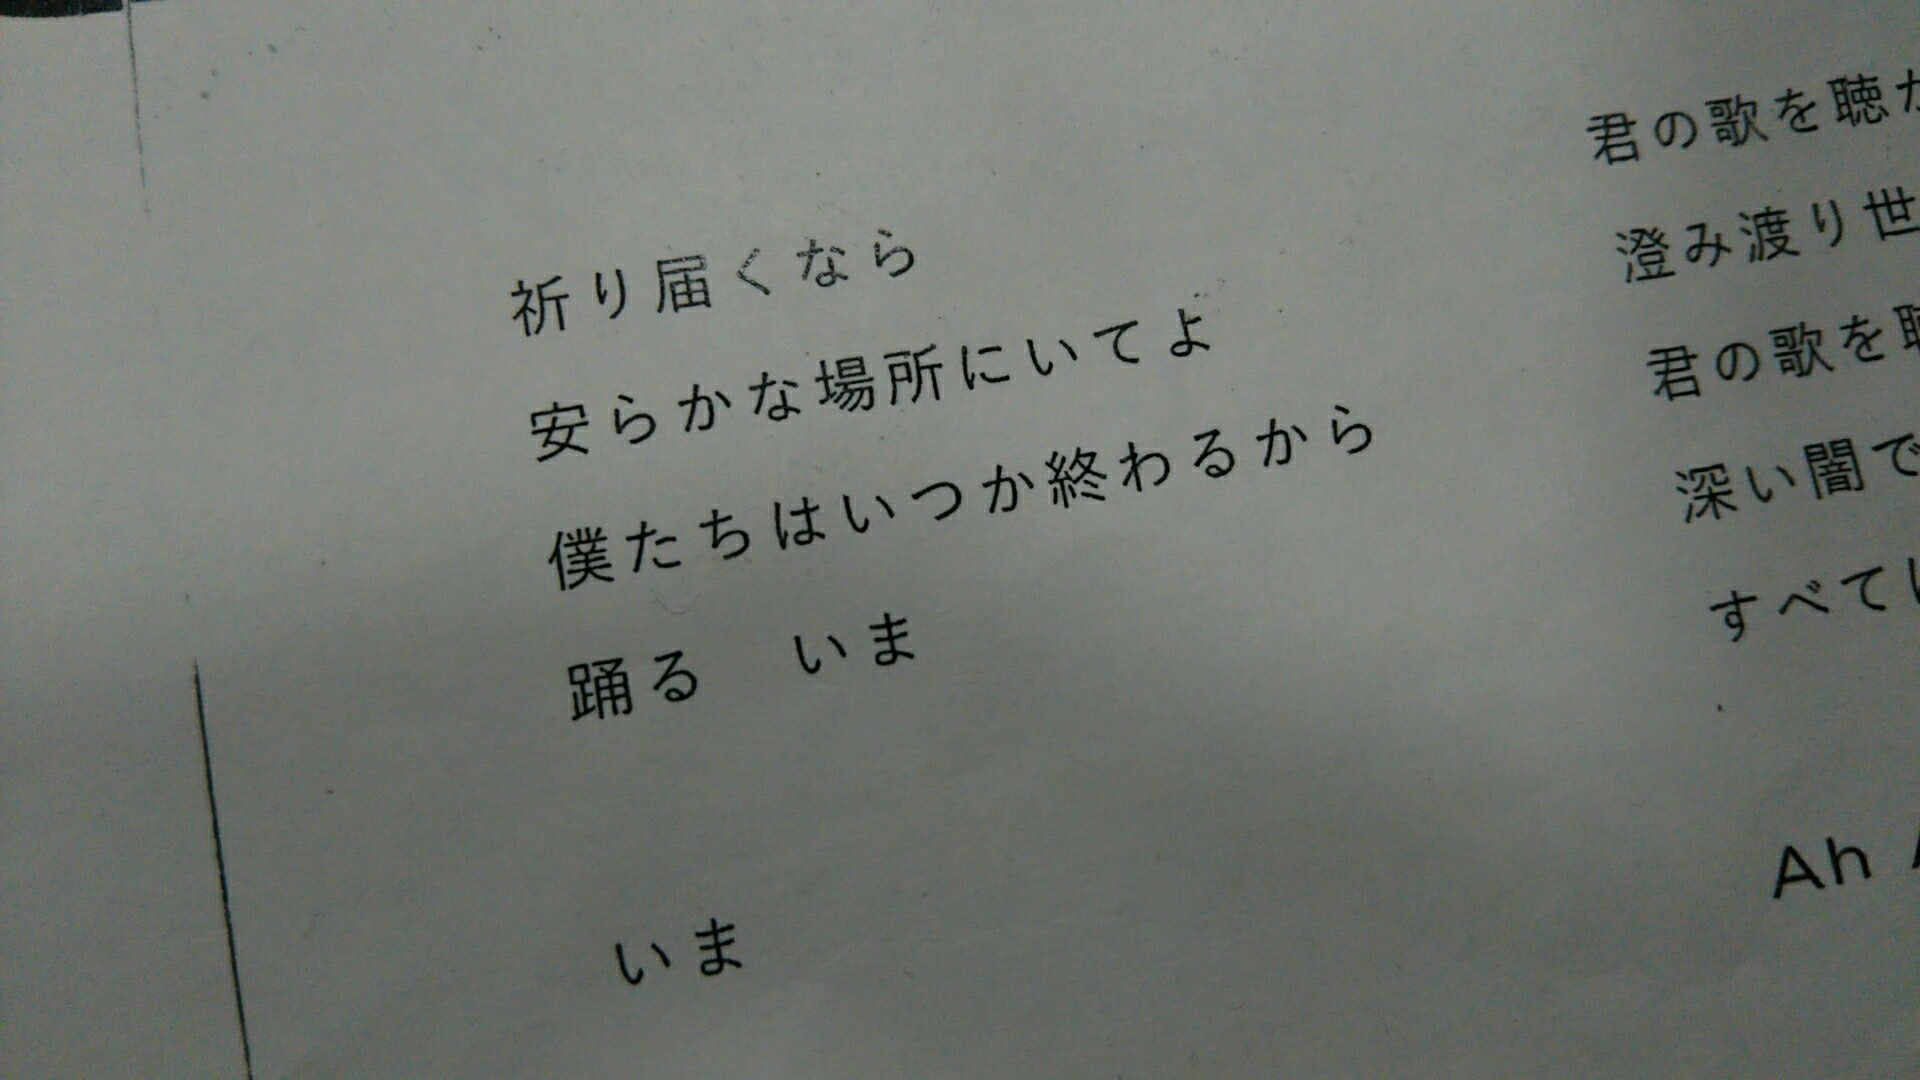 祈り届くなら
安らかな場所にいてよ
僕たちはいつか終わるから
踊る　いま
いま
君の歌を聴
澄み渡り世
君の歌を
深い闇で
すべて
Ah